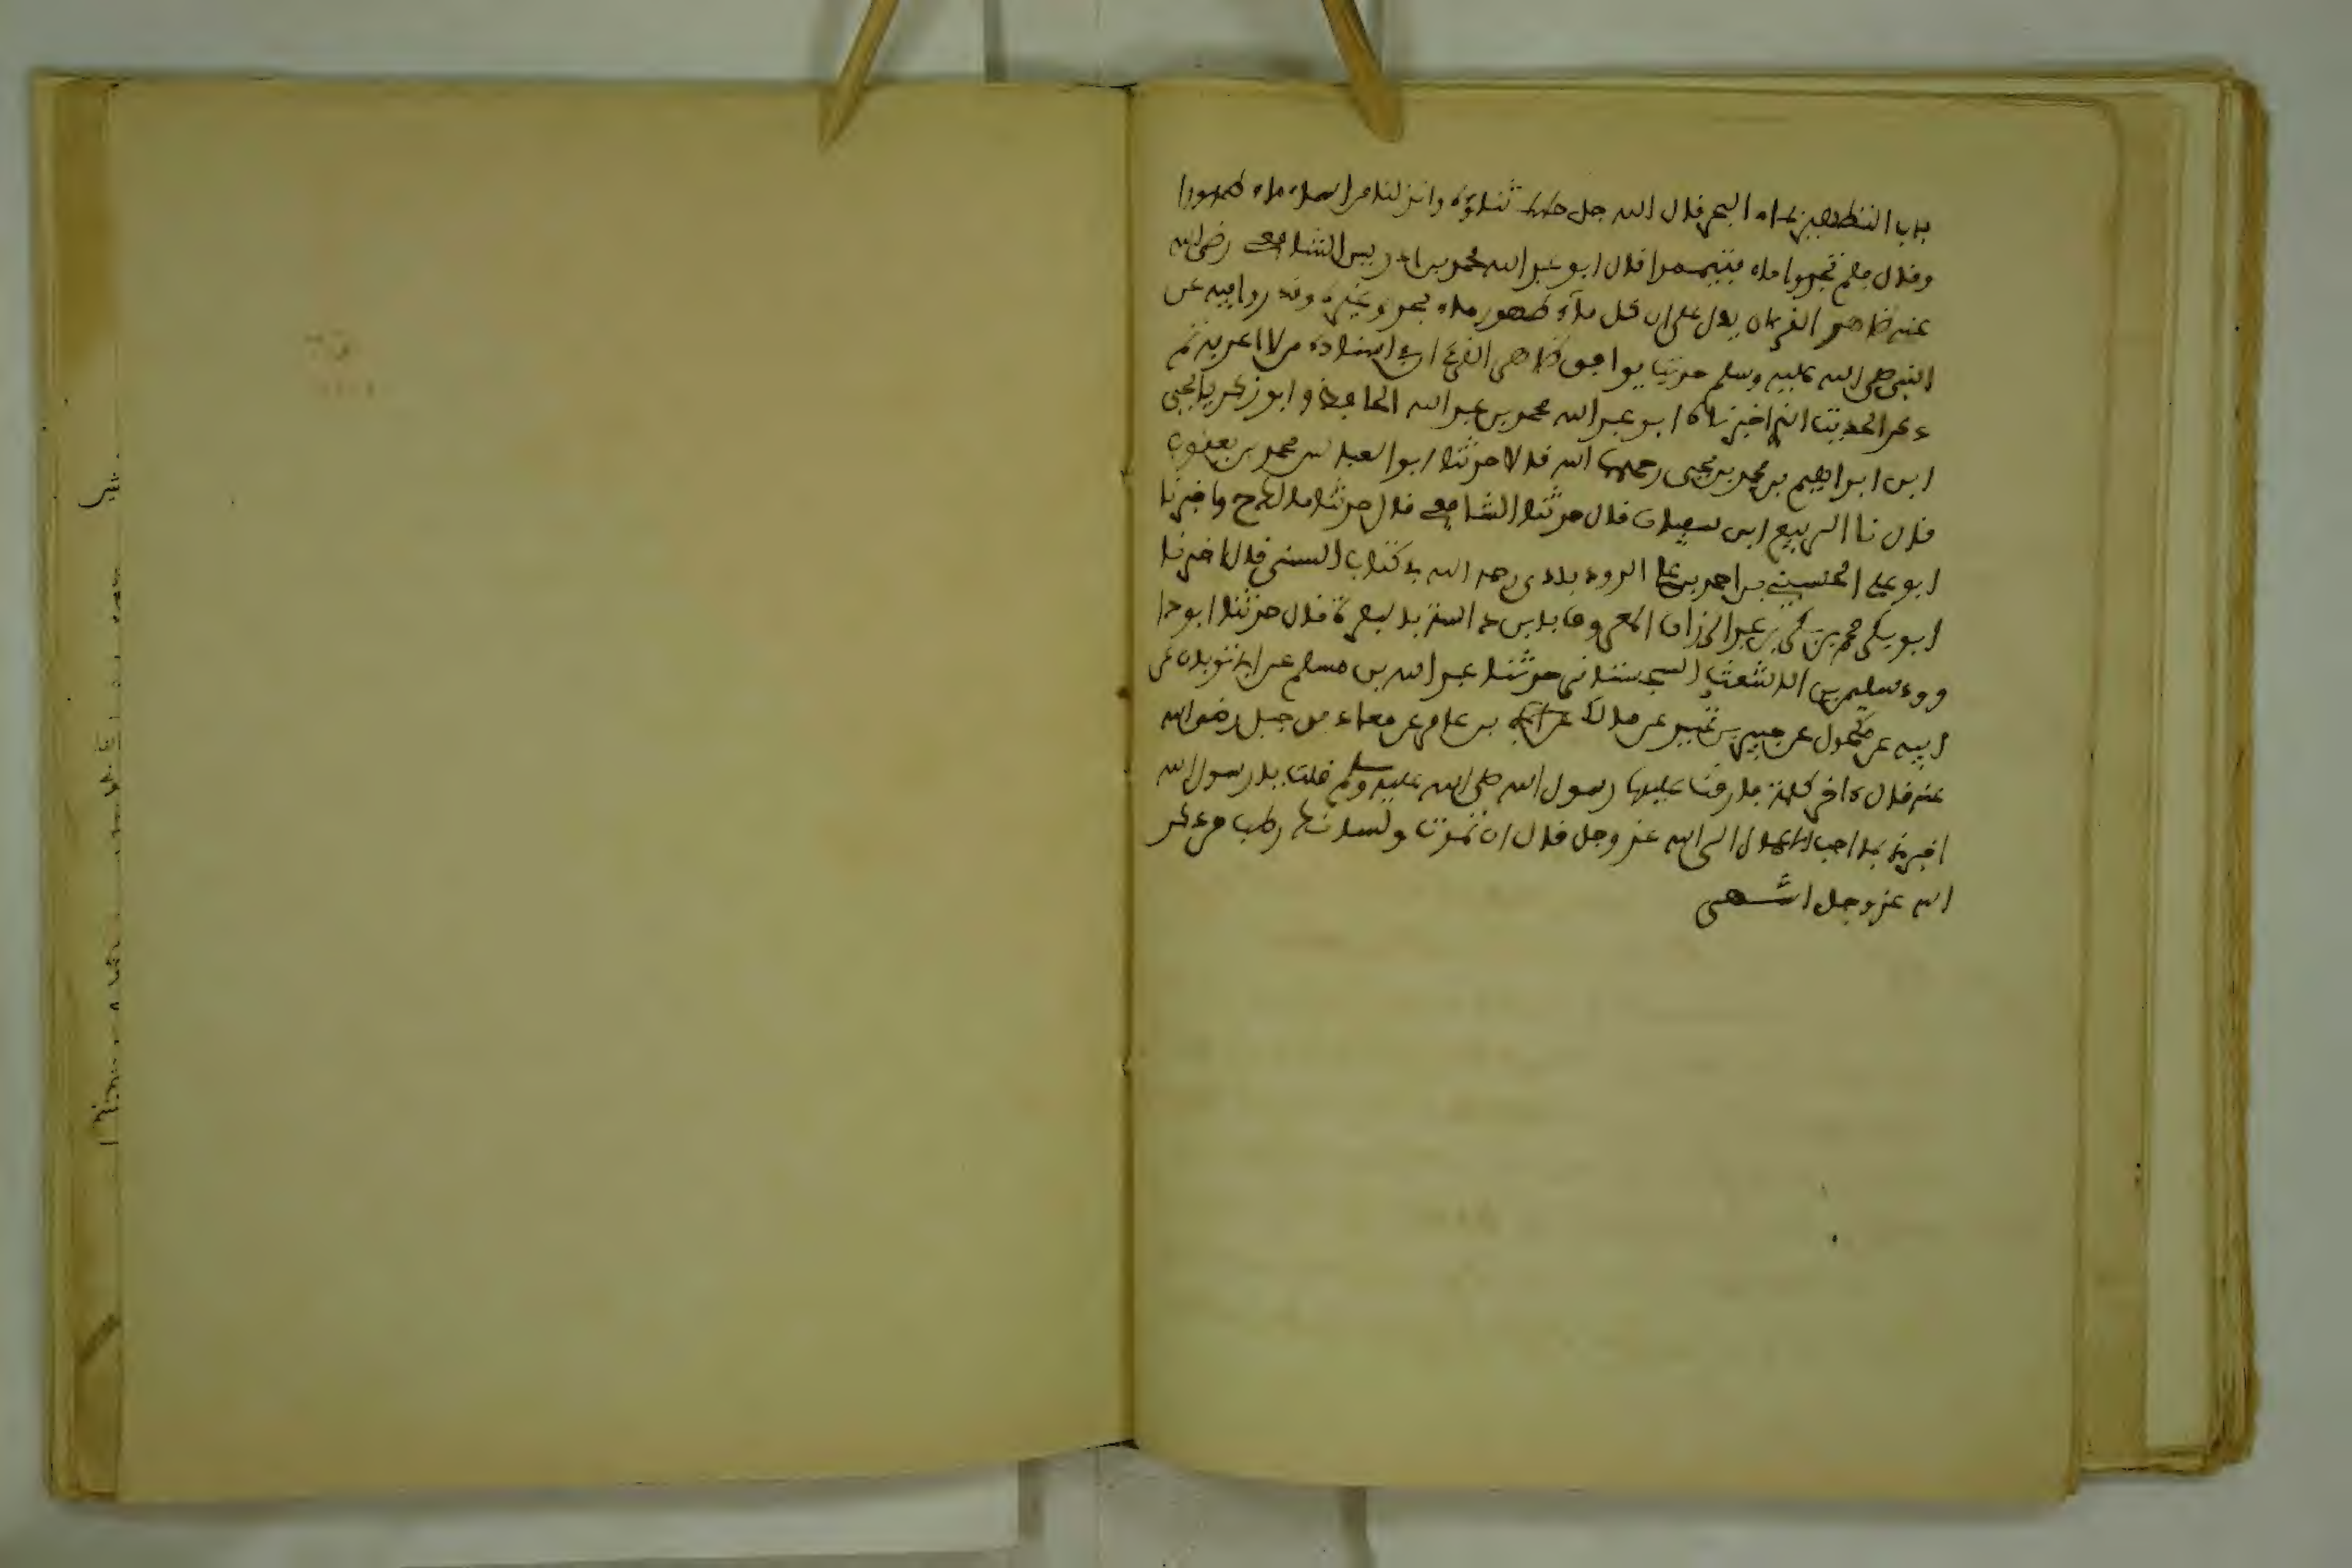 باب التطهير بماء البحر قال الله جل ثناؤه وانزلنا من السماء ماء طهورا
وقال فلم تجدوا ماء فتيمموا قال ابو عبد الله محمد بن ادريس الشافعي رضي الله
عنه ظاهر القرءان يدل على ان كل ماء طهور ماء بحر وغيره وقد روي فيه عن
النبي صلى الله عليه وسلم حديثا يوافق ظاهر القرءان في اسناده من لا اعرفه ثم
ذكر الحديث الذي اخبرناه ابو عبد الله محمد بن عبد الله الحافظ و ابو زكرياء يحيى
ابن ابراهيم بن محمد بن يحيى رحمهما الله قالا حدثنا ابو العباس محمد بن يعقوب
قال نا الربيع ابن سليمان قال حدثنا الشافعي قال حدثنا مالك ح واخبرنا
ابو علي الحسين بن احمد بن علي الروذبادي رحمه الله في كتاب السنن قال اخبرنا
ابو بكر محمد بن بكر بن عبد الرزاق المعروف بابن داسة بالبصرة قال حدثنا ابو دا
وود سليمن بن الاشعث السجستاني حدثنا عبد الله بن مسلم عن ابن ثوبان عن
ابيه عن مكحول عن جبير بن نفير عن مالك بن عامر عن معاذ بن جبل رضي الله
عنه قال ءاخر كلمة فارقت عليها رسول الله صلى الله عليه وسلم قلت يا رسول الله
اخبرني بما احب الاعمال الى الله عز وجل قال ان تموت ولسانك رطب من ذكر
الله عز وجل انتهى